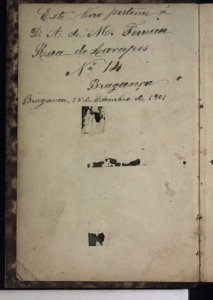 Este livro pertence á
D. A. de M. Ferreira
Rua de
Nº 14
Bragança
Bragança, 25 de Setembro de 1901